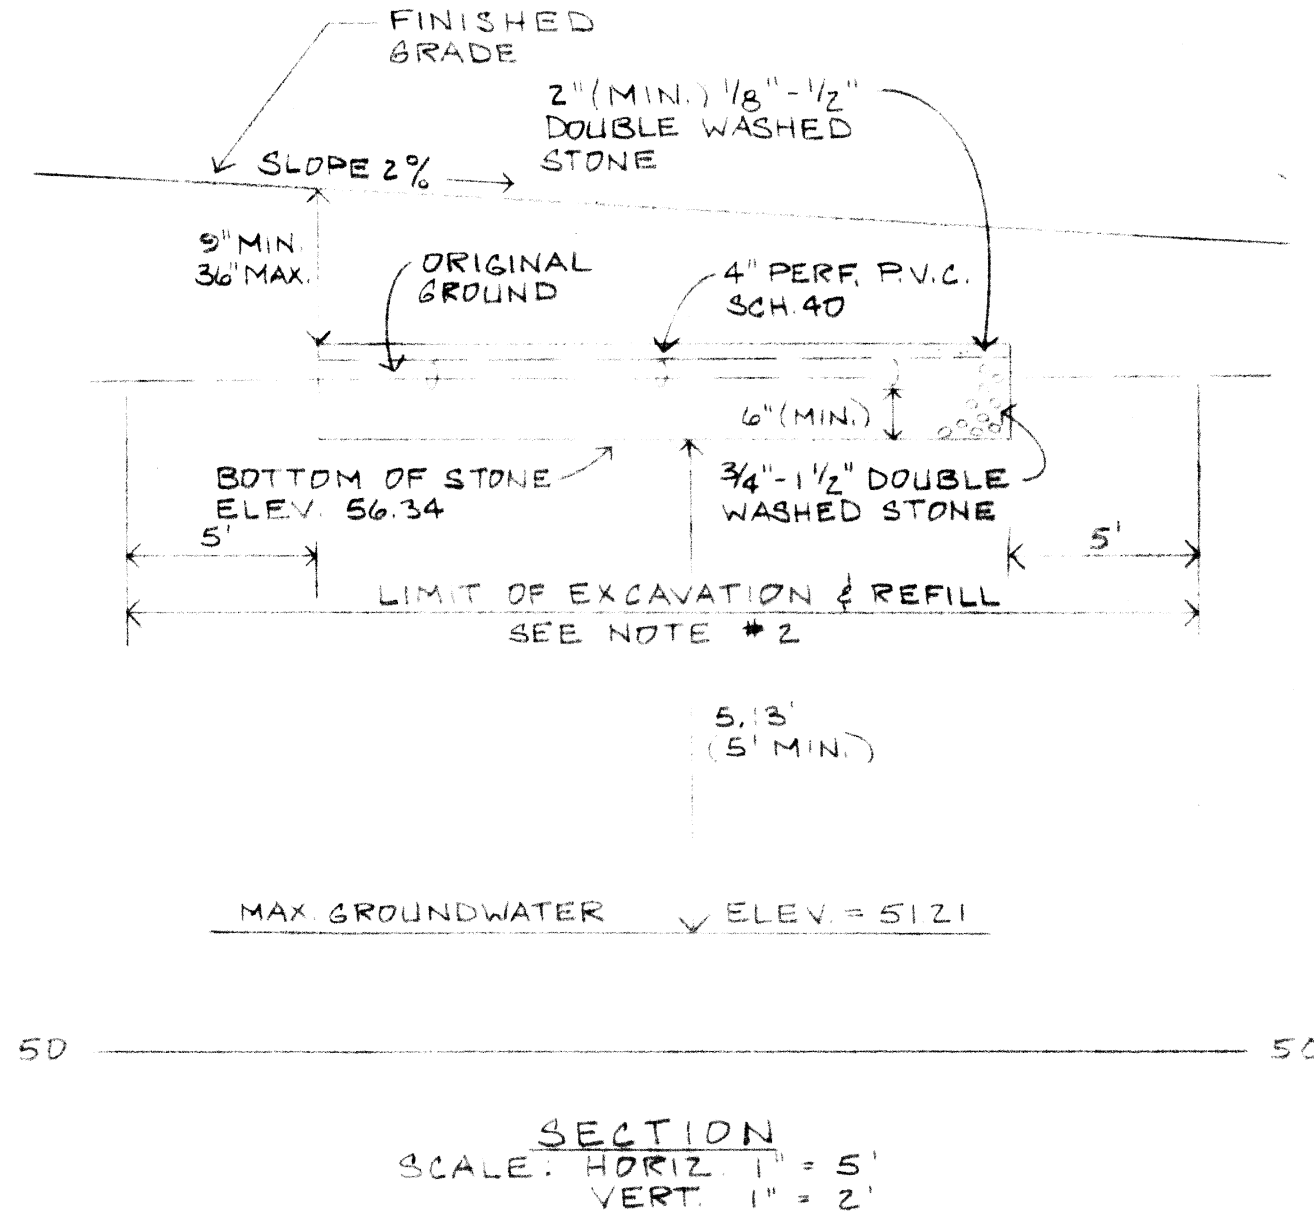 FINISHED
GRADE
2"(MIN.) 1/8"-1/2"
DOUBLE WASHED
STONE
SLOPE 2%
9" MIN.
36" MAX.
ORIGINAL
GROUND
4" PERF. P.V.C.
SCH. 40
6"(MIN.)
BOTTOM OF STONE
ELEV. 56.34
3/4"-1 1/2" DOUBLE
WASHED STONE
5'
5'
LIMIT OF EXCAVATION & REFILL
SEE NOTE #2
5.13'
(5' MIN.)
MAX. GROUNDWATER ELEV. = 51.21
50
50
SECTION
SCALE: HORIZ. 1" = 5'
VERT. 1" = 2'